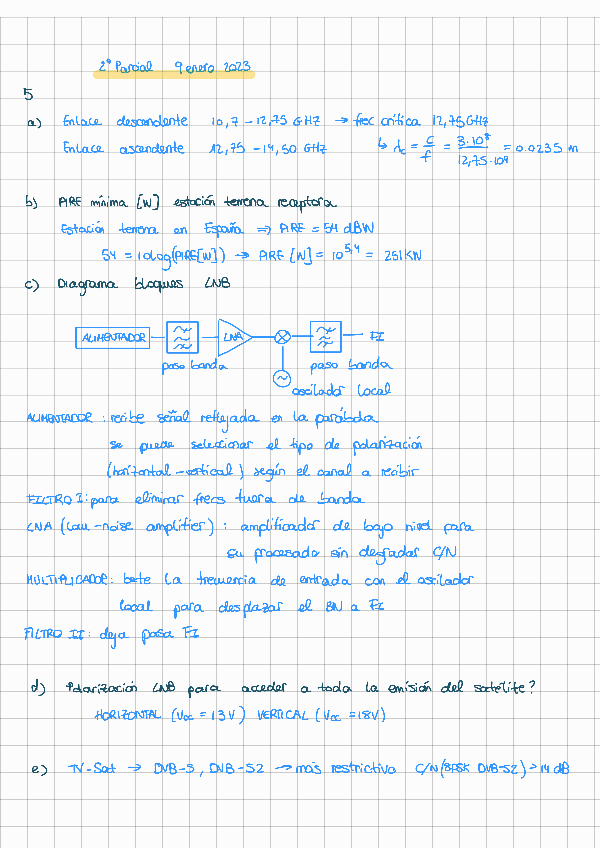 2º Parcial 9 enero 2023
5
a) Enlace descendente 10,7 - 12,75 GHz → frec crítica 12,75 GHz
Enlace ascendente 12,75 - 14,50 GHz ↳ λc = c/f = 3·10⁸/12,75·10⁹ = 0.0235 m
b) PIRE mínima [W] estación terrena receptora
Estación terrena en España ⇒ PIRE = 54 dBW
54 = 10log(PIRE[W]) → PIRE [W] = 10^5,4 = 251KW
c) Diagrama bloques LNB
ALIMENTADOR LNA FI
paso banda paso banda
oscilador local
ALIMENTADOR : recibe señal reflejada en la parábola
se puede seleccionar el tipo de polarización
(horizontal - vertical) según el canal a recibir
FILTRO I: para eliminar frecs fuera de banda
LNA (Low-noise amplifier) : amplificador de bajo nivel para
su procesado sin degradar C/N
MULTIPLICADOR: bate la frecuencia de entrada con el oscilador
local para desplazar el BN a FI
FILTRO II: deja pasa FI
d) Polarización LNB para acceder a toda la emisión del satélite?
HORIZONTAL (Vcc = 13V) VERTICAL (Vcc = 18V)
e) TV-Sat → DVB-S, DVB-S2 → más restrictiva C/N (8PSK DVB-S2) > 14 dB